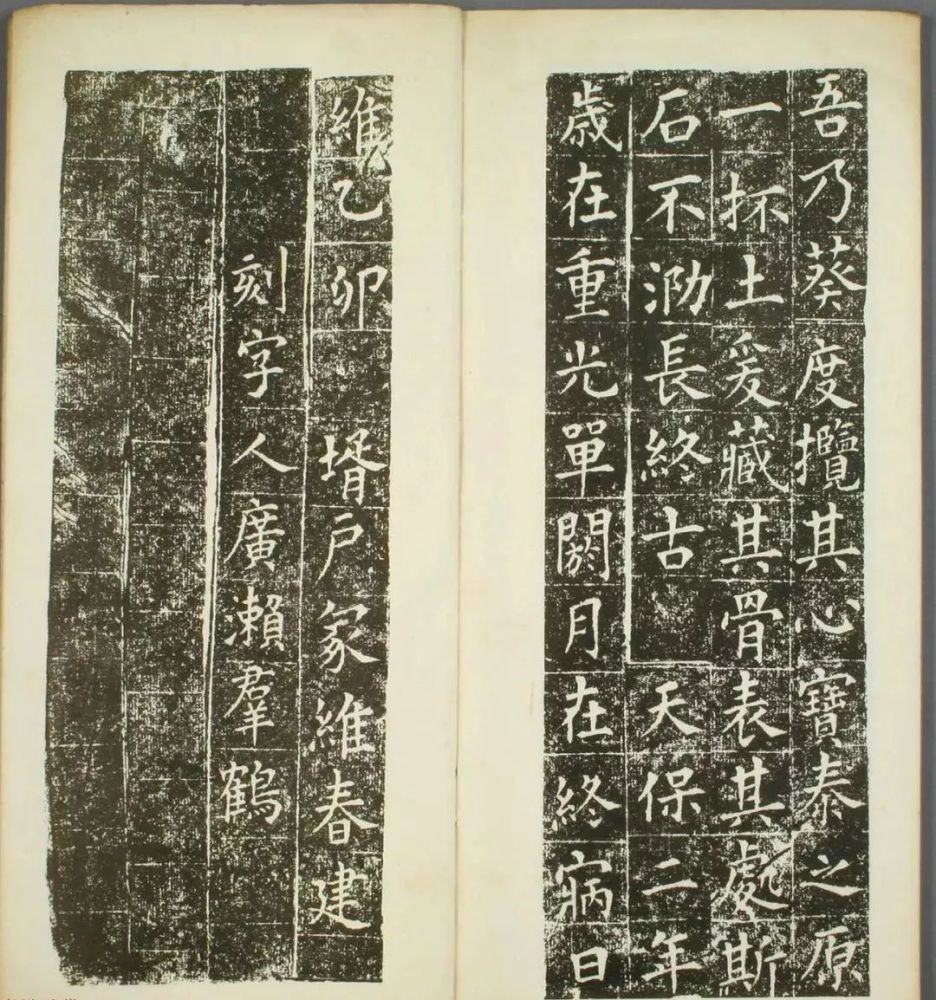 吾乃葵度攬其心寶泰之原
一抔土爰藏其骨表其處斯
石不泐長終古 天保二年
歲在重光單閼月在終窉日
維乙卯 壻戶冢維春建
刻字人廣瀨羣鶴